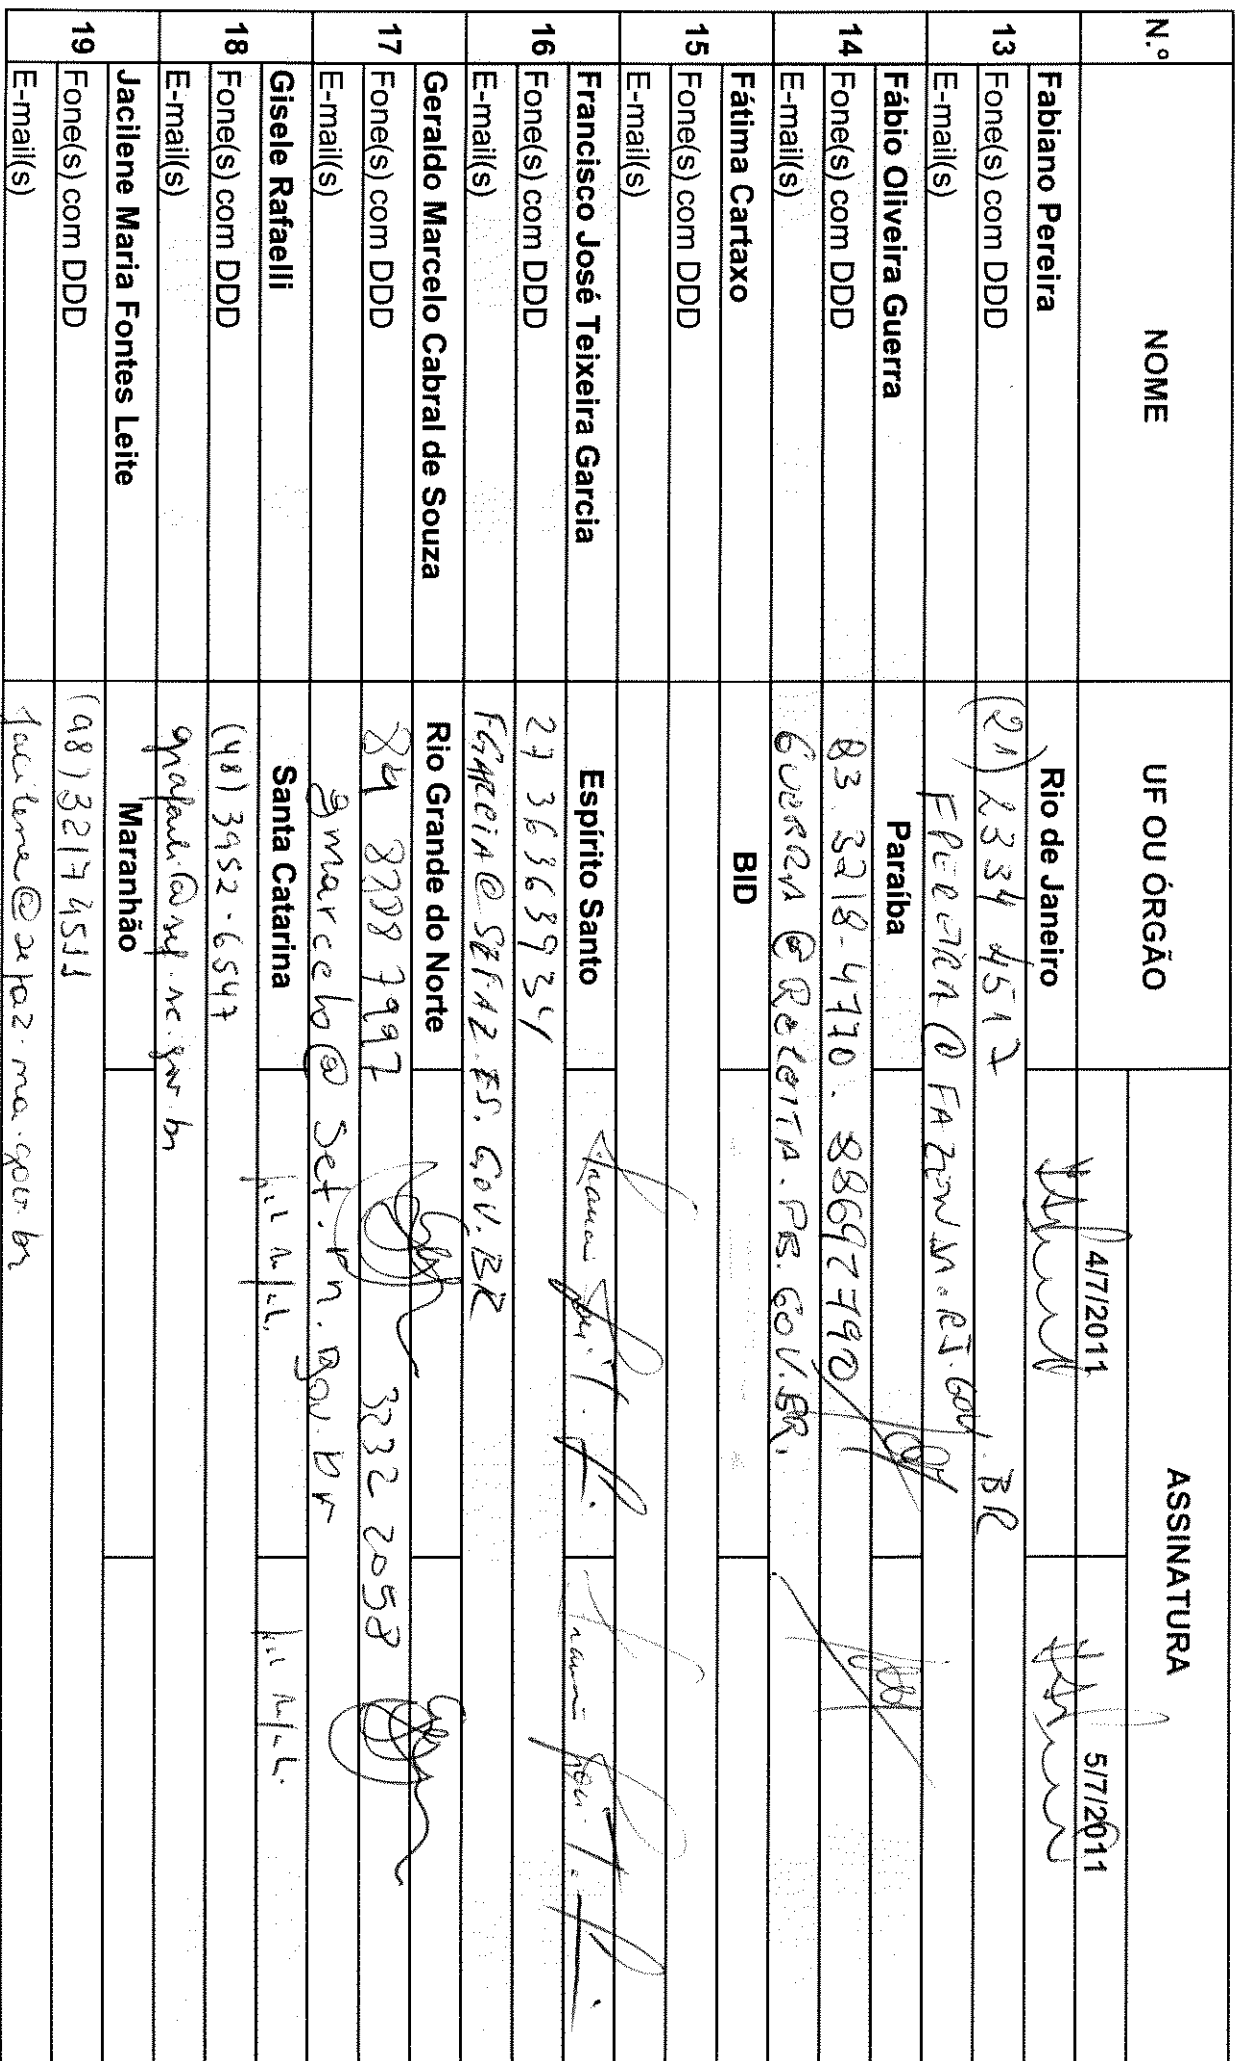 N.º NOME UF OU ÓRGÃO ASSINATURA
4/7/2011 5/7/2011
13 Fabiano Pereira Rio de Janeiro
Fone(s) com DDD (21) 2334 4517
E-mail(s) FPEREIRA@FAZENDA.RJ.GOV.BR
14 Fábio Oliveira Guerra Paraíba
Fone(s) com DDD 83.3218-4770. 88697790
E-mail(s) GUERRA@RECEITA.PB.GOV.BR.
15 Fátima Cartaxo BID
Fone(s) com DDD
E-mail(s)
16 Francisco José Teixeira Garcia Espírito Santo
Fone(s) com DDD 27 36363934
E-mail(s) FGARCIA@SEFAZ.ES.GOV.BR
17 Geraldo Marcelo Cabral de Souza Rio Grande do Norte
Fone(s) com DDD 84 8788 7997 3232 2058
E-mail(s) gmarcelo@set.rn.gov.br
18 Gisele Rafaelli Santa Catarina
Fone(s) com DDD (48) 3952.6547
E-mail(s) grafaeli@sef.sc.gov.br
19 Jacilene Maria Fontes Leite Maranhão
Fone(s) com DDD (98) 32174511
E-mail(s) jacilene@sefaz.ma.gov.br